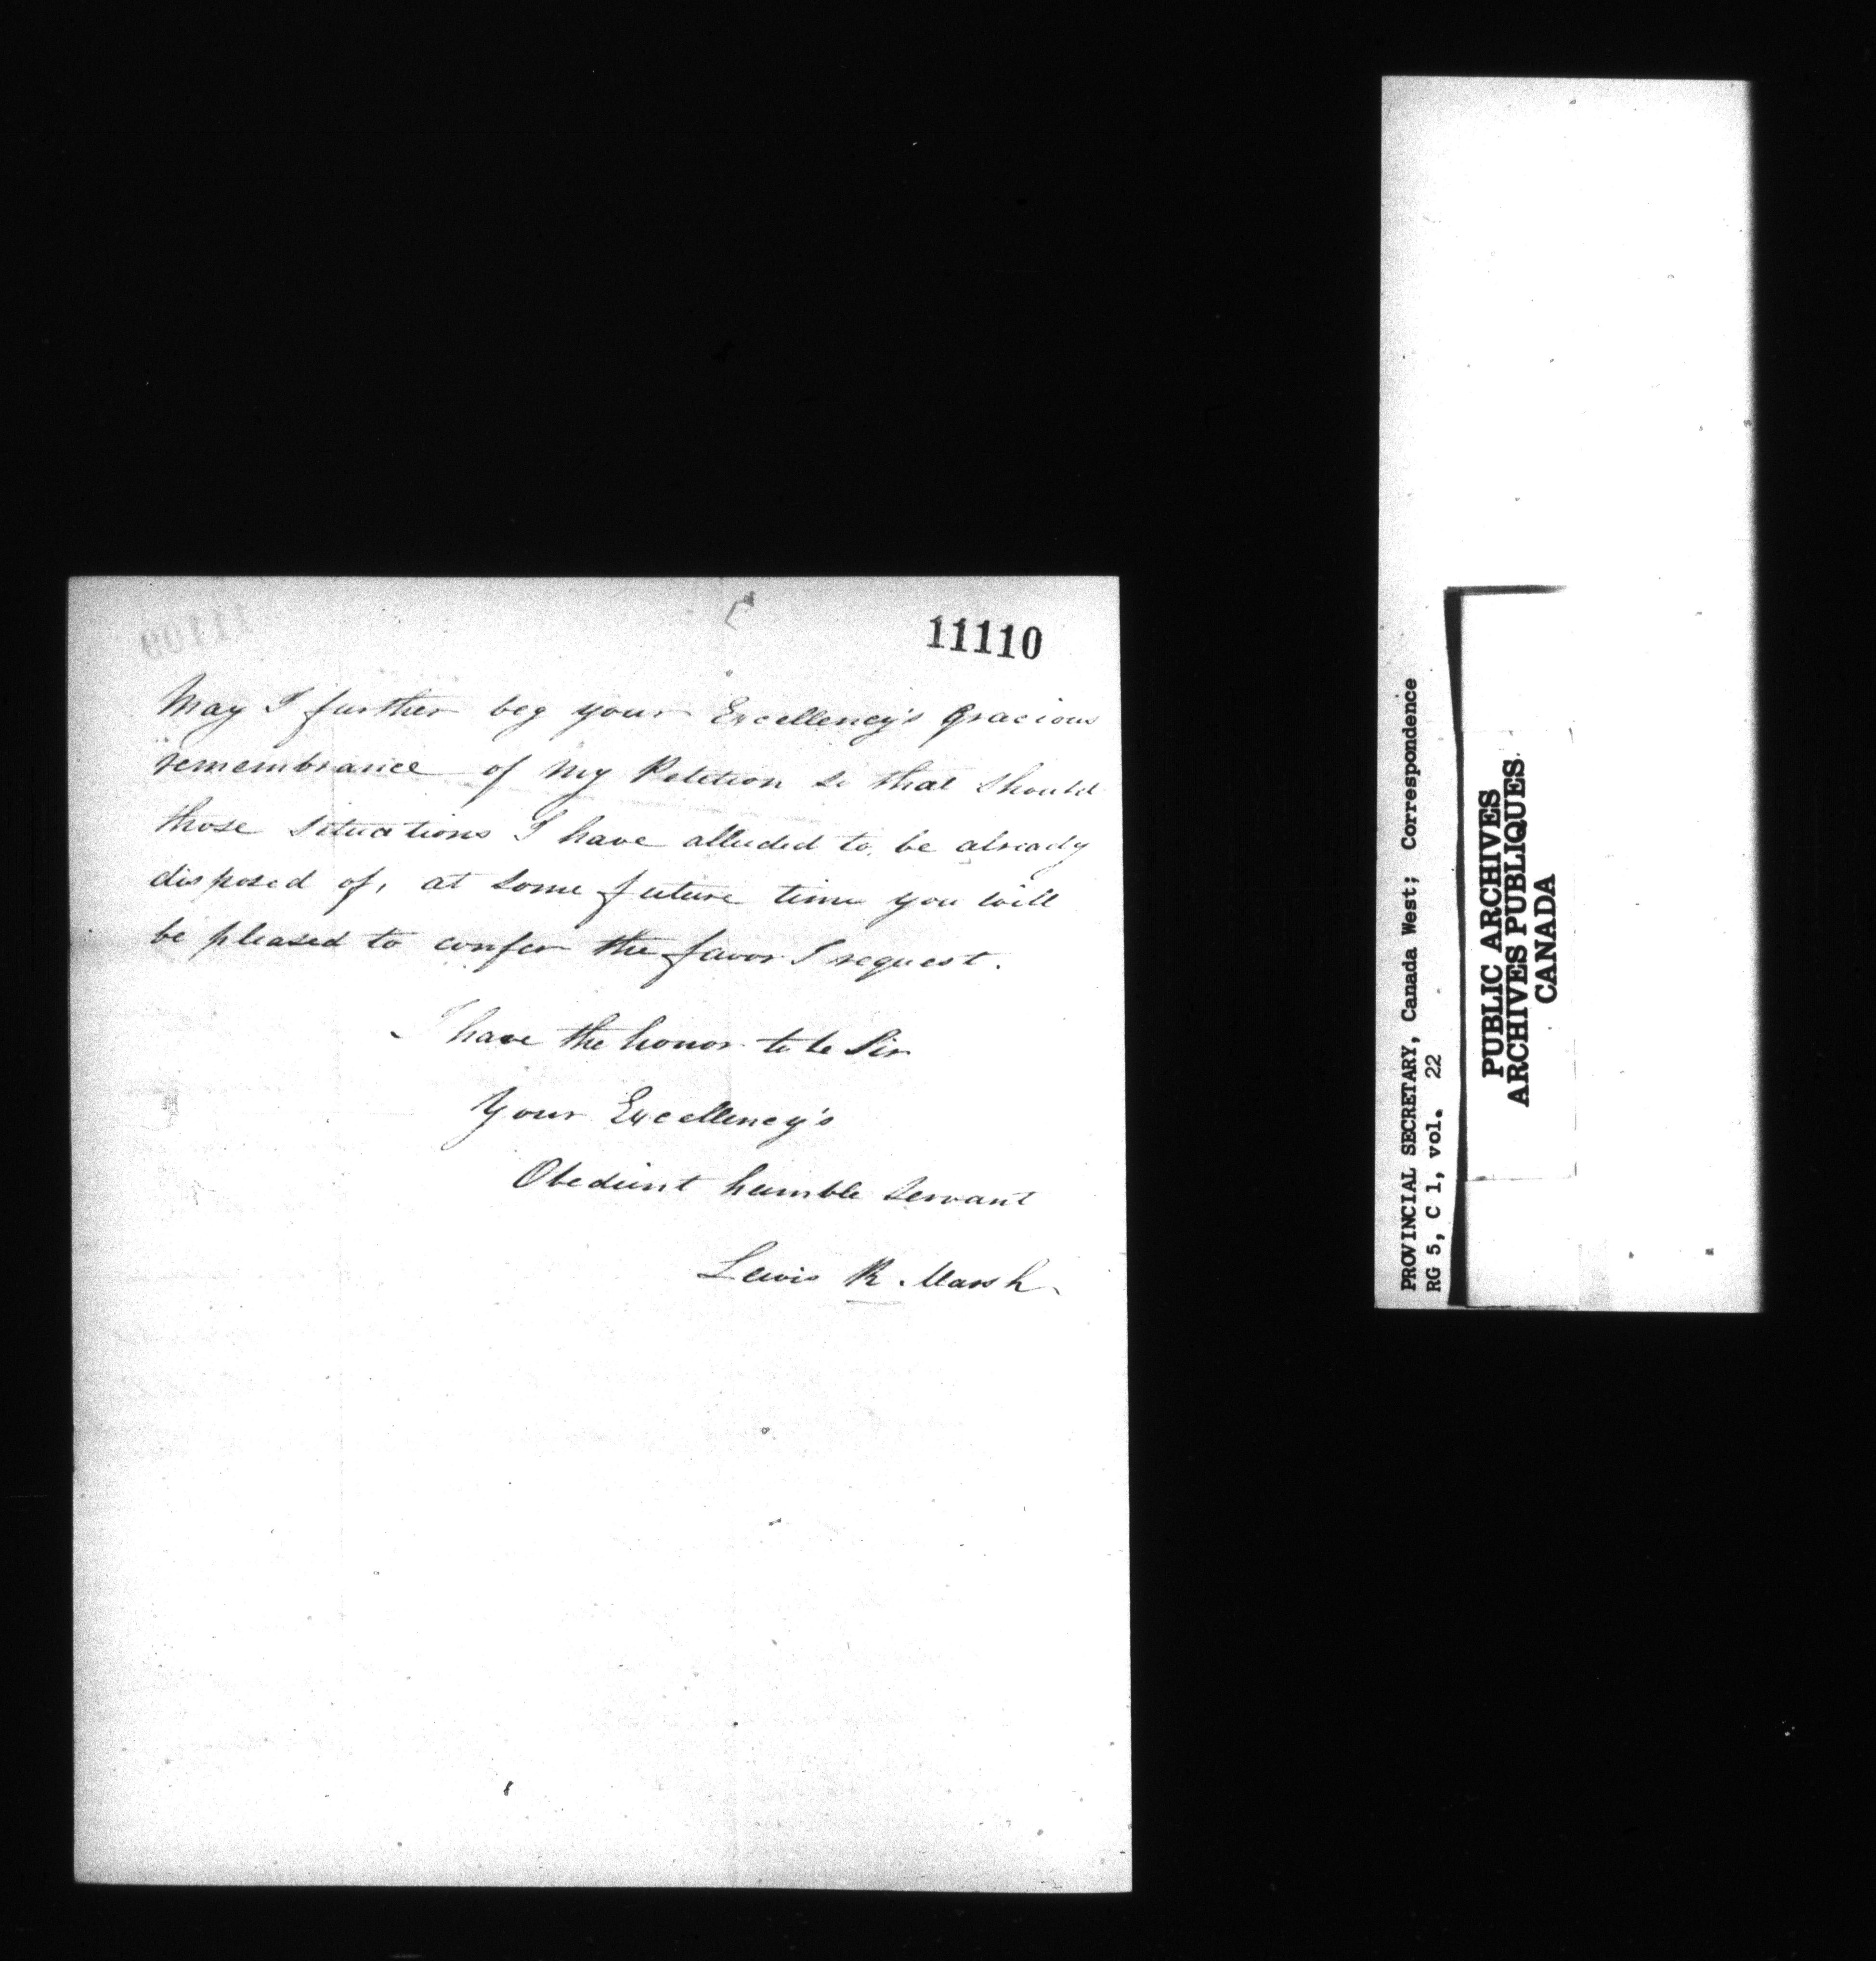 11110
11109
May I further beg your Excellency's Gracious
remembrance of My Petition so that should
those situations I have alluded to, be already
disposed of, at some future time you will
be pleased to confer the favor I request.
I have the honor to be Sir
Your Excellency's
Obedient humble servant
Lewis R. Marsh
PROVINCIAL SECRETARY, Canada West; Correspondence
RG 5, C 1, vol. 22
PUBLIC ARCHIVES
ARCHIVES PUBLIQUES
CANADA